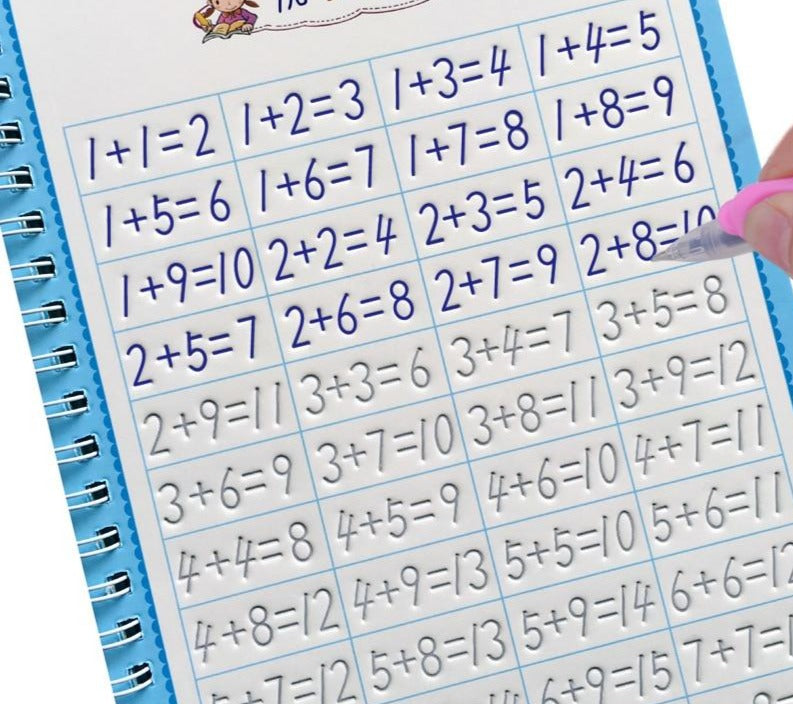 1+1=2 1+2=3 1+3=4 1+4=5
1+5=6 1+6=7 1+7=8 1+8=9
1+9=10 2+2=4 2+3=5 2+4=6
2+5=7 2+6=8 2+7=9 2+8=10
2+9=11 3+3=6 3+4=7 3+5=8
3+6=9 3+7=10 3+8=11 3+9=12
4+4=8 4+5=9 4+6=10 4+7=11
4+8=12 4+9=13 5+5=10 5+6=11
5+7=12 5+8=13 5+9=14 6+6=12
6+9=15 7+7=1